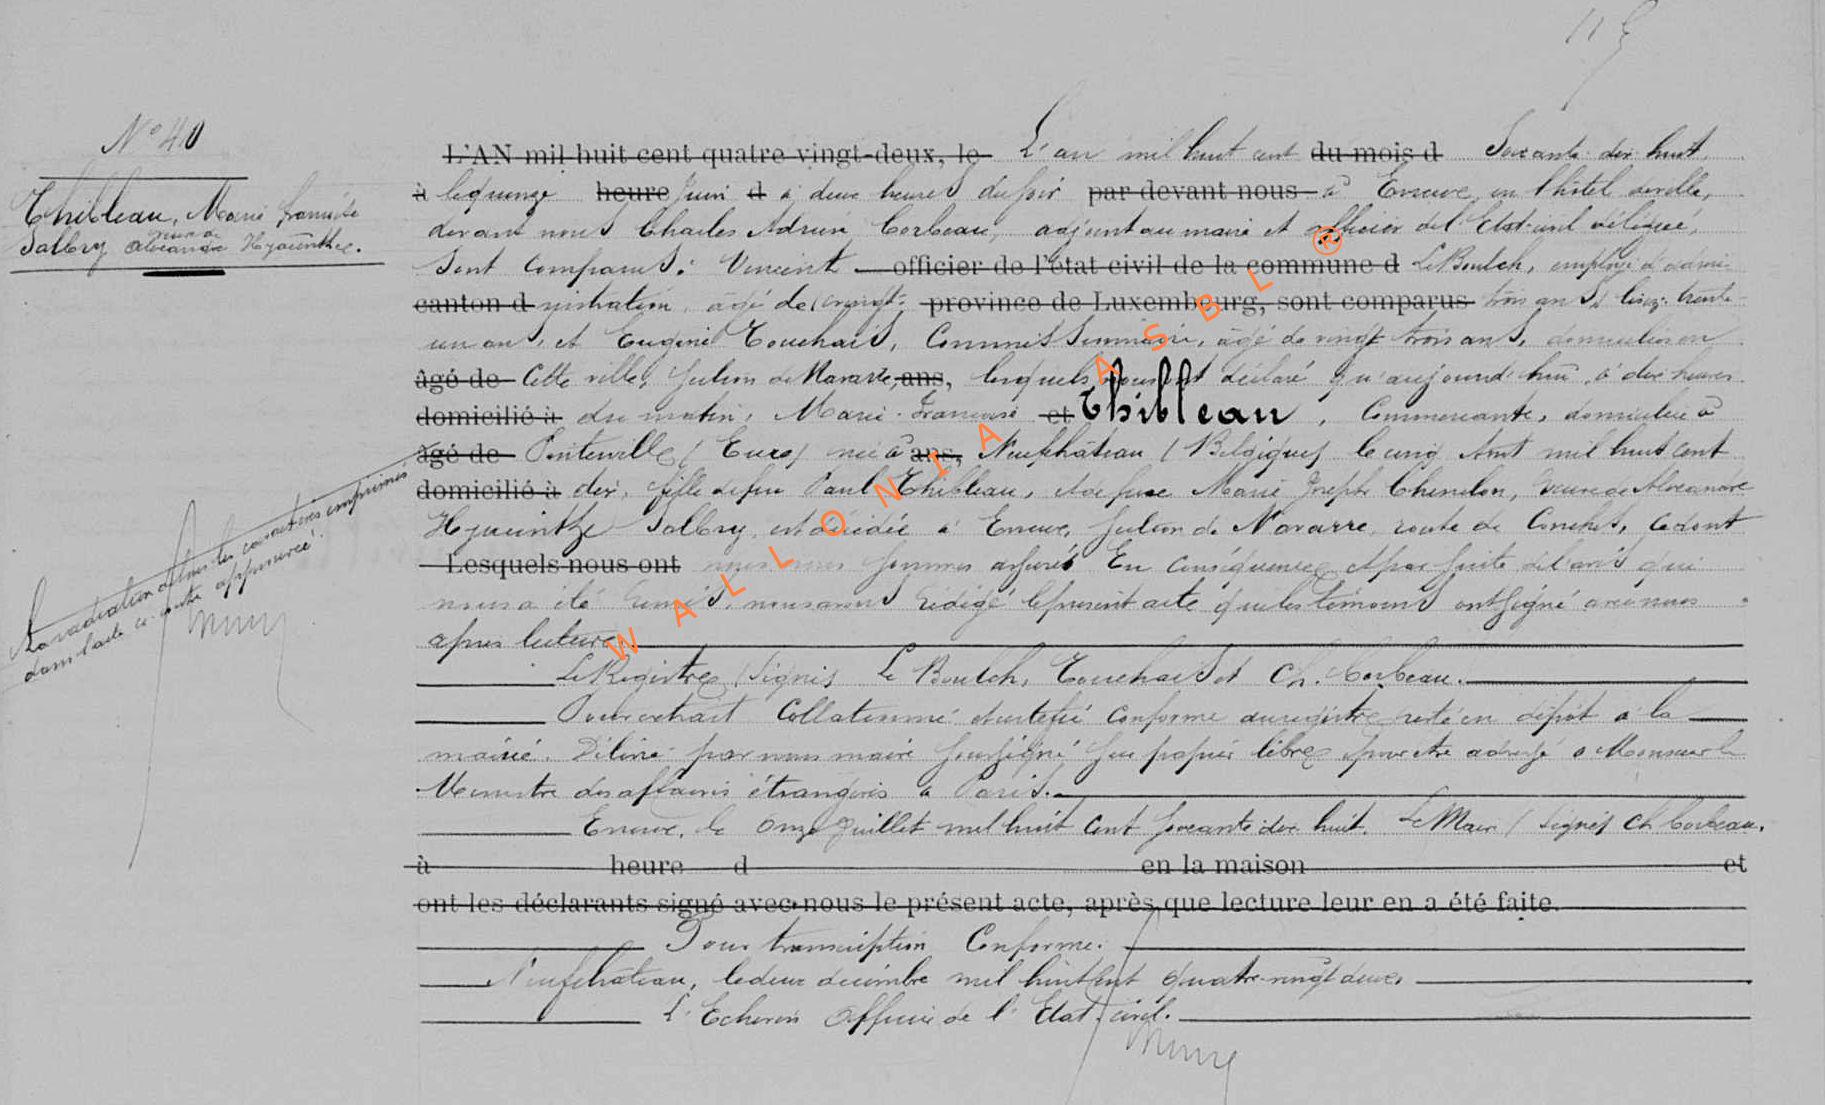 N° 40
Thibleau, Marie françoise
veuve de
Salbry Alexandre Hyacinthe.
L'AN mil huit cent quatre-vingt-deux, le L'an mil huit cent du mois d Soixante dix huit,
à le quinze heure Juin d à deux heures du soir par devant nous à Evreux, en l'hôtel de ville,
devant nous Charles Adrien Corbeau, adjoint au maire et officier de l'Etat-civil délégué,
Sont Comparus: Vincent officier de l'état civil de la commune d Le Boulch, employé d'admi-
canton d nistration, âgé de vingt- province de Luxembourg, sont comparus trois ans, trente
un ans, et Eugène Touchais, Commis, âgé de vingt trois ans, domiciliés en
âgé de Cette ville, section de Navarre, ans, lesquels nous ont déclaré qu'aujourd'hui, à dix heures
domicilié à du matin, Marie-Françoise et Thibleau, Commerçante, domiciliée à
âgé de (Eure) née à ans, Neufchâteau (Belgique) le cinq Août mil huit cent
domicilié à dix, fille de feu Paul Thibleau, et de feue Marie Joseph, Veuve de Alexandre
Hyacinthe Salbry, est décédée à Evreux, section de Navarre, route de Conches, ce dont
Lesquels nous ont nous nous sommes assurés En Conséquence et par suite de l'avis qui
nous a été remis, nous avons rédigé le présent acte que les témoins ont signé avec nous
après lecture
Le Registre (signés Le Boulch, Touchais et Ch. Corbeau.
Pour extrait Collationné et certifié conforme au registre resté en dépôt à la
mairie. Délivré par nous maire soussigné sur papier libre, pour être adressé à Monsieur le
Ministre des affaires étrangères à Paris.
Evreux, le onze Juillet mil huit cent soixante dix huit. Le Maire (signé) Ch Corbeau.
à heure d en la maison et
ont les déclarants signé avec nous le présent acte, après que lecture leur en a été faite.
Pour transcription Conforme.
Neufchâteau, le deux décembre mil huit cent quatre-vingt deux,
L'Echevin Officier de l'Etat-civil.
La radiation de tous les caractères imprimés
dans l'acte ci-contre approuvée.
WALLONIA ASBL ®